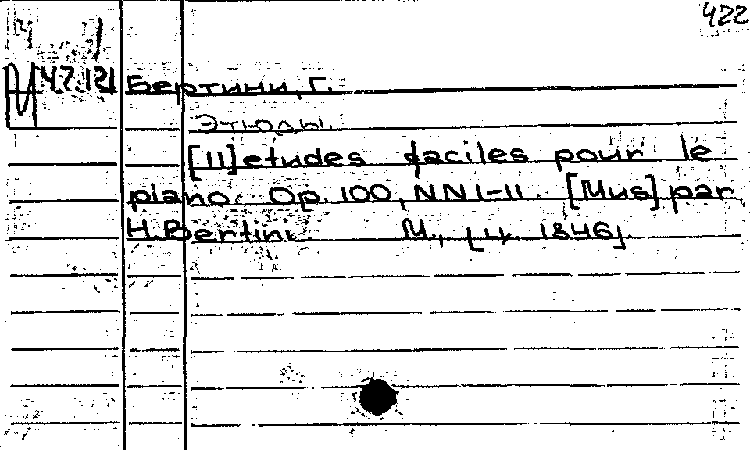 422
М 47.121 Бертини, Г.
Этюды.
[11] etudes faciles pour le
piano. Op. 100, NN 1-11. [Mus] par
H. Bertini. М., 1846].